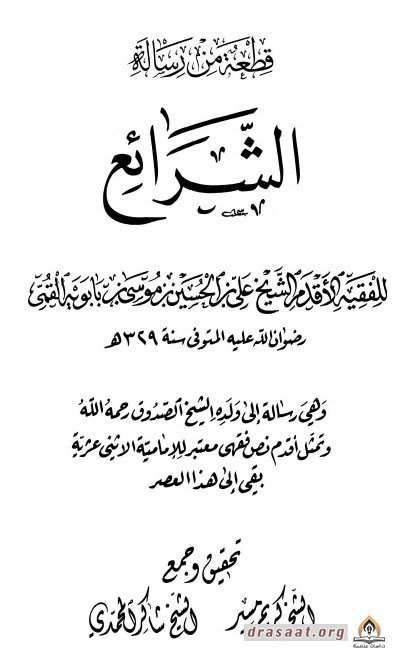 قطعة من رسالة
الشرائع
للفقيه الأقدم الشيخ علي بن الحسين بن موسى بن بابويه القمي
رضوان الله عليه المتوفى سنة ٣٢٩هـ
وهي رسالة إلى ولده الشيخ الصدوق رحمه الله
وتمثل أقدم نص فقهي معتبر للإمامية الاثني عشرية
بقي إلى هذا العصر
تحقيق وجمع
الشيخ كريم مسير الشيخ شاكر المحمدي
drasaat.org
دراسات علمية